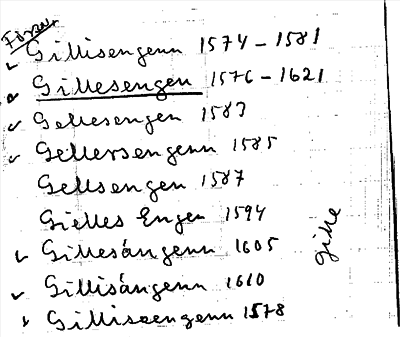 Gillisengenn 1574-1581
Gillesengen 1576-1621
Gellesengen 1583
Gellersengenn 1585
Gellsengen 1587
Gielles Engen 1594
Gillesångenn 1605
Gillisångenn 1610
Gilliszengenn 1578
Gille